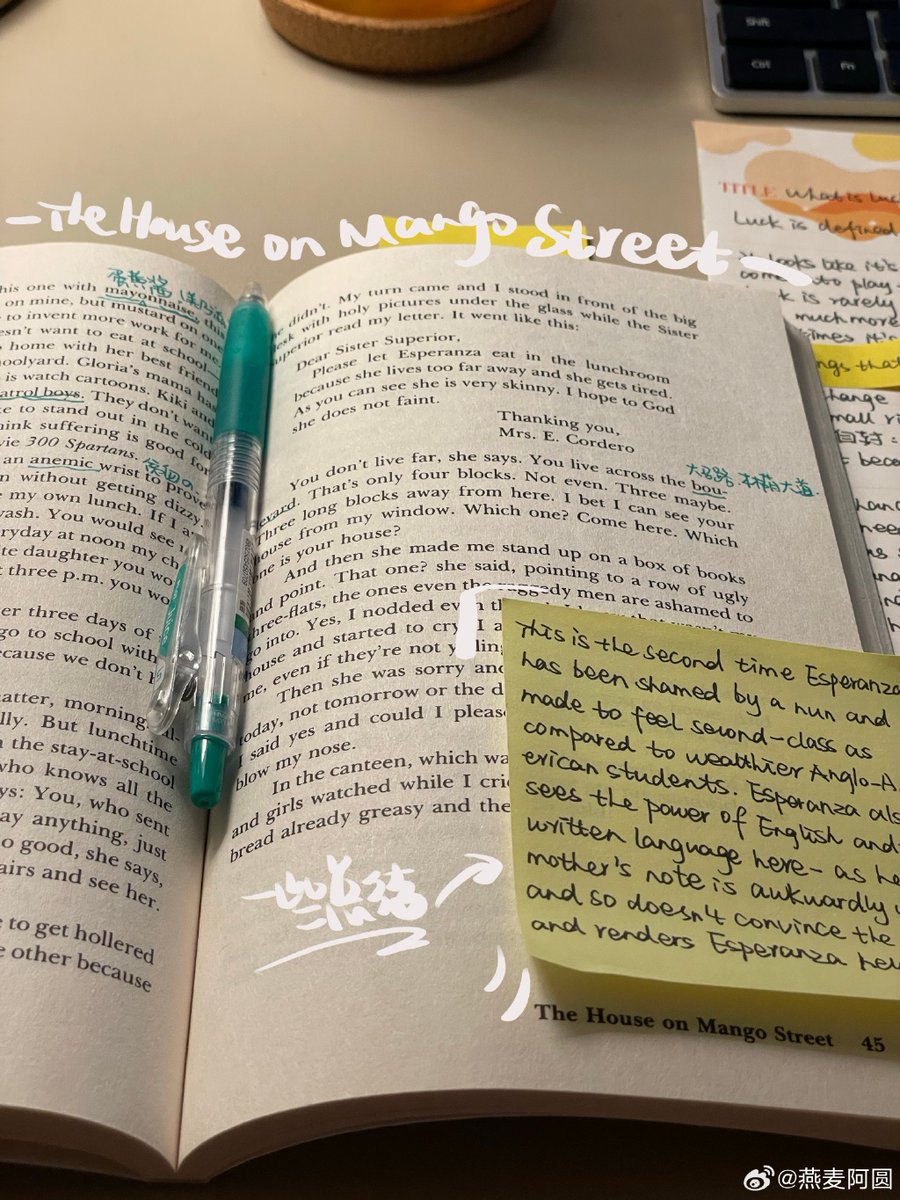 Shift
Ctrl
Fn
-The House on Mango Street-
TITLE What is luc
Luck is defined
looks like it's
to play-
is rarely
much more
times it's
ngs that
change
mall
beco
need
蛋黄酱
his one with mayonnaise, this
on mine, but mustard on one
to invent more work for me
esn't want to eat at school—
home with her best friend
hoolyard. Gloria's mama has
is watch cartoons. Kiki and
atrol boys. They don't want
ke to stand out in the cold
hink suffering is good for
vie 300 Spartans.
an anemic wrist to prove
n without getting dizzy
my own lunch. If I a
wash. You would see
eryday at noon my ch
ite daughter you wo
t three p.m. you wo
er three days of
go to school with
ecause we don't
natter, morning
ally. But lunchtime
the stay-at-school
who knows all the
ys: You, who sent
ay anything, just
o good, she says,
airs and see her.
e to get hollered
e other because
didn't. My turn came and I stood in front of the big
desk with holy pictures under the glass while the Sister
Superior read my letter. It went like this:
Dear Sister Superior,
Please let Esperanza eat in the lunchroom
because she lives too far away and she gets tired.
As you can see she is very skinny. I hope to God
she does not faint.
Thanking you,
Mrs. E. Cordero
大马路 林荫大道
You don't live far, she says. You live across the bou-
levard. That's only four blocks. Not even. Three maybe.
Three long blocks away from here. I bet I can see your
house from my window. Which one? Come here. Which
one is your house?
And then she made me stand up on a box of books
and point. That one? she said, pointing to a row of ugly
three-flats, the ones even the raggedy men are ashamed to
go into. Yes, I nodded even
house and started to cry. I a
me, even if they're not yelling
Then she was sorry and
today, not tomorrow or the d
I said yes and could I please
blow my nose.
In the canteen, which wa
and girls watched while I cri
bread already greasy and the
This is the second time Esperanza
has been shamed by a nun and
made to feel second-class as
compared to wealthier Anglo-A
erican students. Esperanza als
sees the power of English and
written language here- as he
mother's note is awkwardly
and so doesn't convince the
and renders Esperanza hel
一些总结
The House on Mango Street 45
@燕麦阿圆